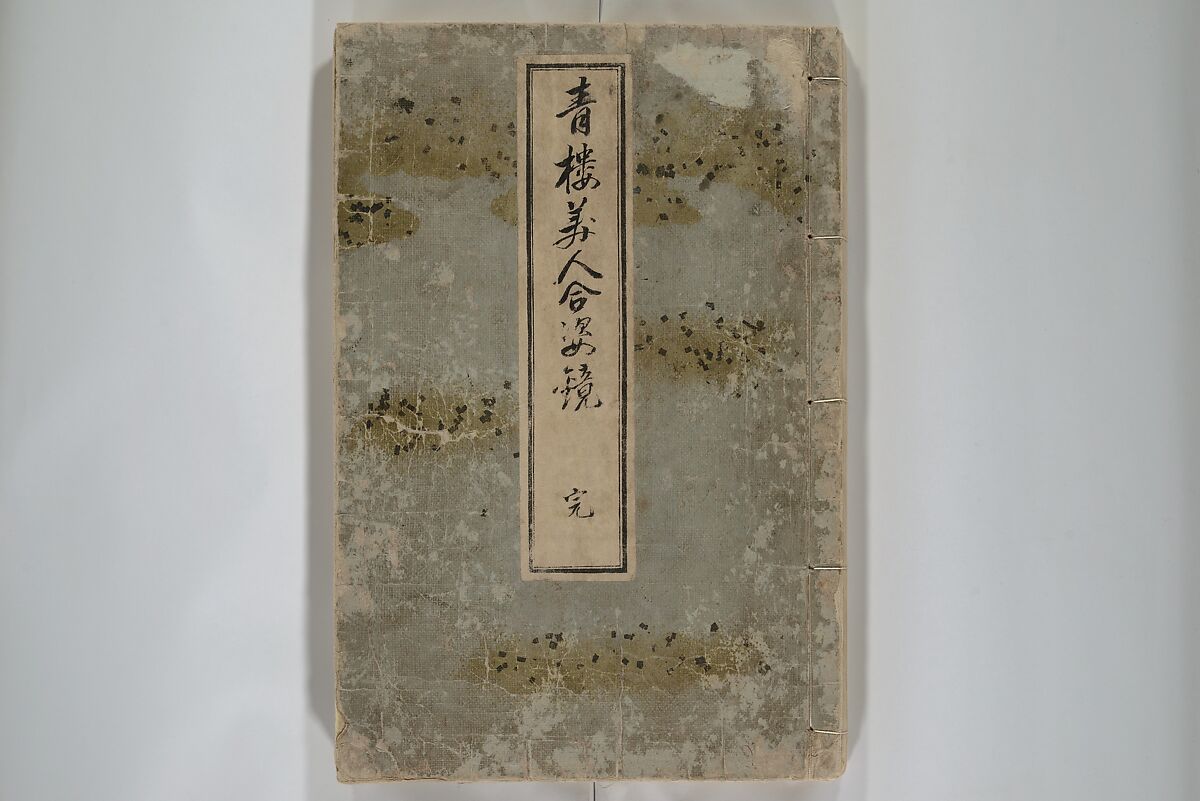 青樓美人合姿鏡 完